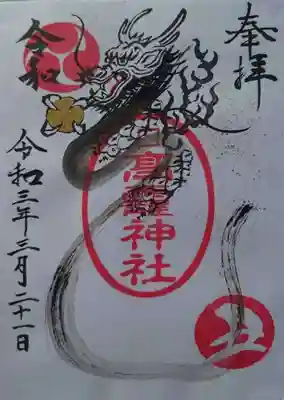 奉拝
高龗神社
丑
令和
令和三年三月二十一日